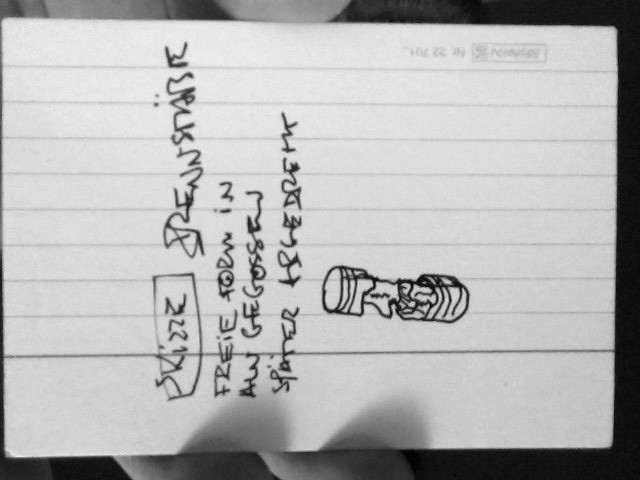 SKIZZE BRENNSTÄBE
FREIE FORM IN
ALU GEGOSSEN
SPÄTER ABGEDREHT
Nr. 22 701